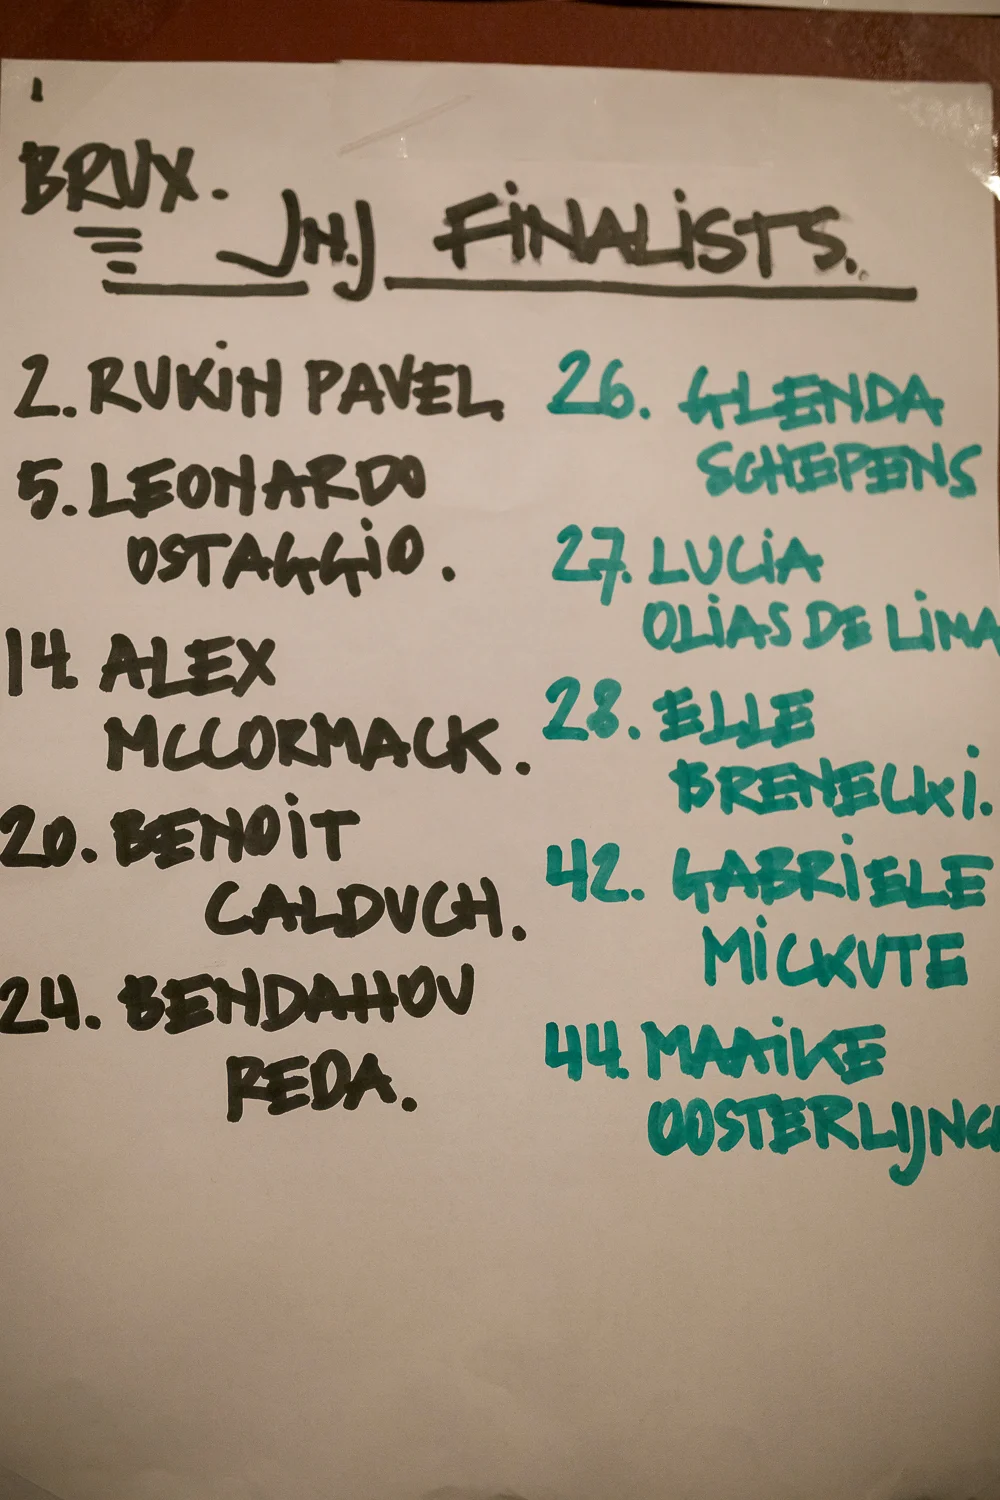 BRUX.
JnJ FINALISTS.
2. RUKIN PAVEL
5. LEONARDO
OSTAGGIO.
14. ALEX
MCCORMACK.
20. BENOIT
CALDUCH.
24. BENDAHOU
REDA.
26. GLENDA
SCHEPENS
27. LUCIA
OLIAS DE LIMA
28. ELLE
BRENECKI.
42. GABRIELE
MICKUTE
44. MAAIKE